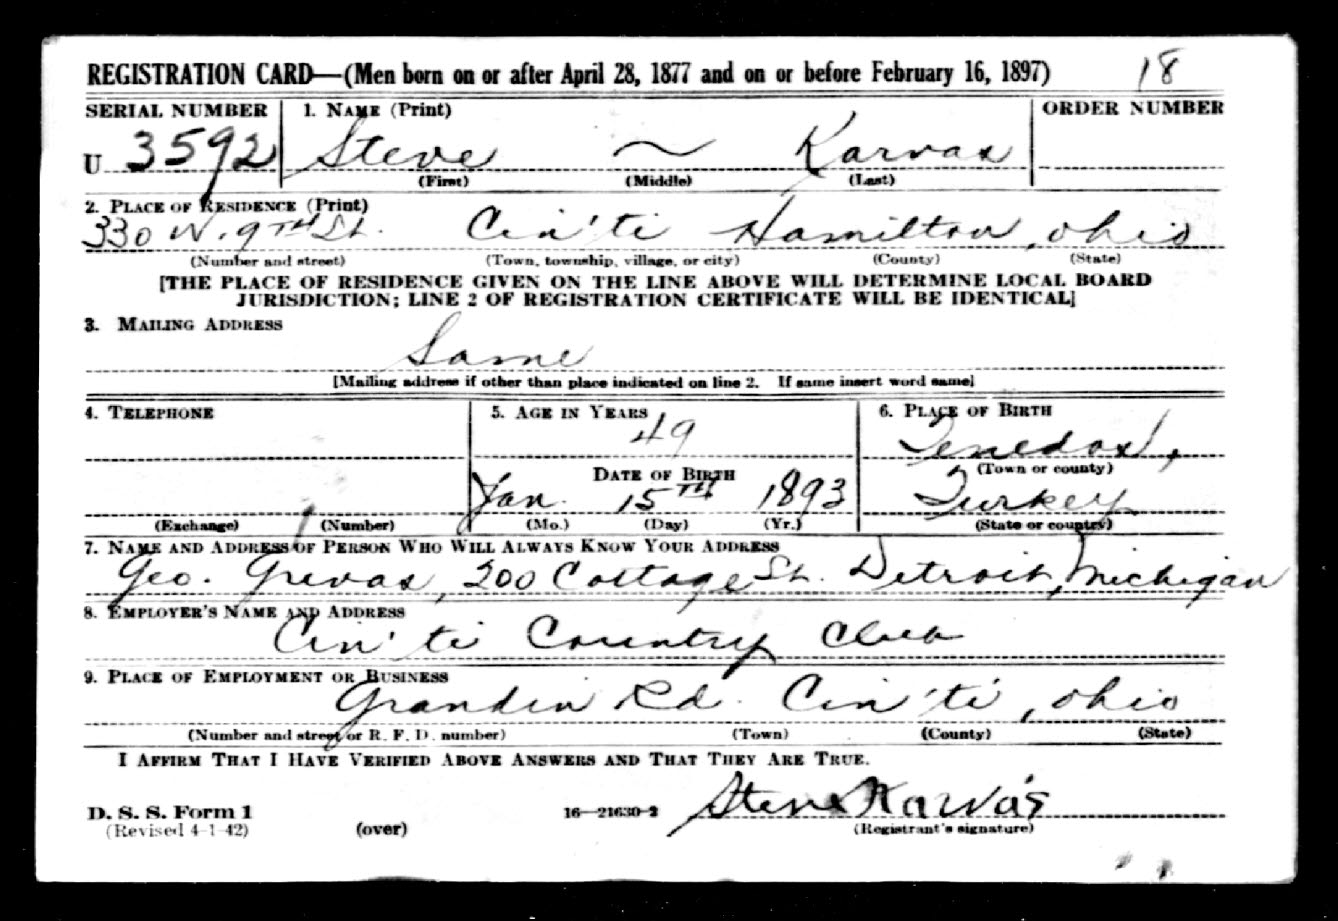 REGISTRATION CARD—(Men born on or after April 28, 1877 and on or before February 16, 1897) 18
SERIAL NUMBER 1. NAME (Print) ORDER NUMBER
U 3592 Steve ~ Karvas
(First) (Middle) (Last)
2. PLACE OF RESIDENCE (Print)
330 W. 9TH St. Cin'ti Hamilton, Ohio
(Number and street) (Town, township, village, or city) (County) (State)
[THE PLACE OF RESIDENCE GIVEN ON THE LINE ABOVE WILL DETERMINE LOCAL BOARD
JURISDICTION; LINE 2 OF REGISTRATION CERTIFICATE WILL BE IDENTICAL]
3. MAILING ADDRESS
Same
[Mailing address if other than place indicated on line 2. If same insert word same]
4. TELEPHONE 5. AGE IN YEARS 6. PLACE OF BIRTH
49 Tenedos,
DATE OF BIRTH (Town or county)
Jan. 15TH 1893 Turkey
(Exchange) (Number) (Mo.) (Day) (Yr.) (State or country)
7. NAME AND ADDRESS OF PERSON WHO WILL ALWAYS KNOW YOUR ADDRESS
Geo. Grevas, 200 Cottage St. Detroit, Michigan
8. EMPLOYER'S NAME AND ADDRESS
Cin'ti Country Club
9. PLACE OF EMPLOYMENT OR BUSINESS
Grandin Rd. Cin'ti, Ohio
(Number and street or R. F. D. number) (Town) (County) (State)
I AFFIRM THAT I HAVE VERIFIED ABOVE ANSWERS AND THAT THEY ARE TRUE.
D. S. S. Form 1 16—21630-2 Steve Karvas
(Revised 4-1-42) (over) (Registrant's signature)